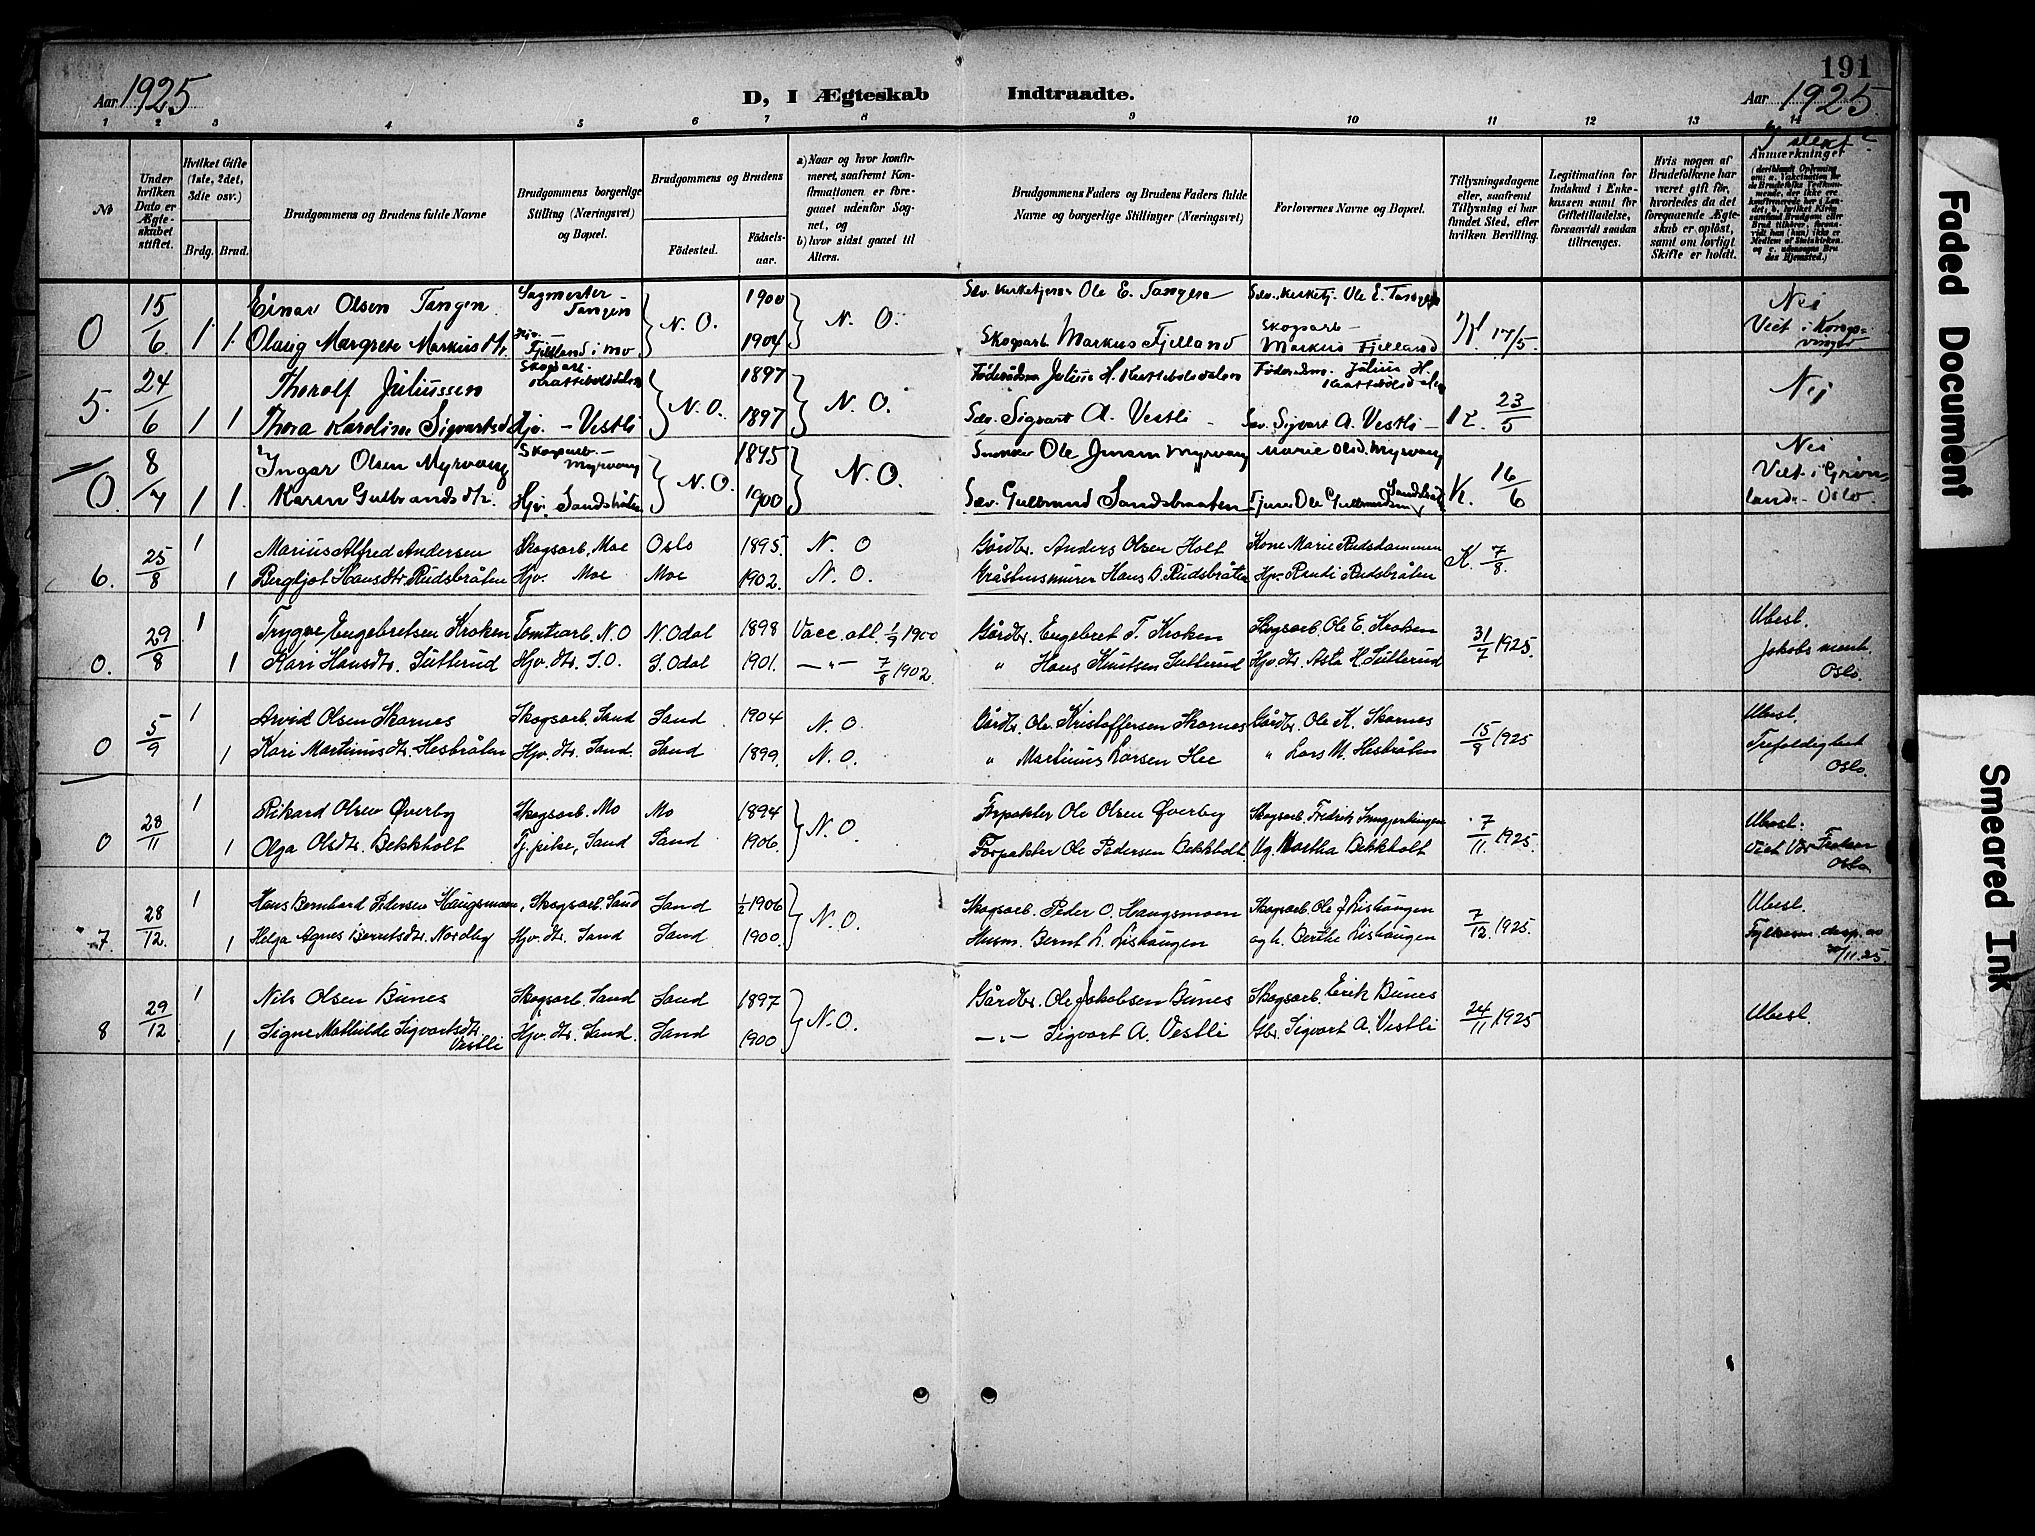 191
Aar 1925
D, I Ægteskab Indtraadte.
Aar 1925
1 2 3 4 5 6 7 8 9 10 11 12 13 14
№
Under hvilken Dato er Ægteskabet stiftet.
Hvilket Gifte (1ste, 2det, 3die osv.)
Brdg. Brud.
Brudgommens og Brudens fulde Navne
Brudgommens borgerlige Stilling (Næringsvei) og Bopæl.
Brudgommens og Brudens
Födested.
Födsels-aar.
a) Naar og hvor konfirmeret, saafremt Konfirmationen er foregaaet udenfor Sognet, og
b) hvor sidst gaaet til Alters.
Brudgommens Faders og Brudens Faders fulde Navne og borgerlige Stillinger (Næringsvei)
Forlovernes Navne og Bopæl.
Tillysningsdagene eller, saafremt Tillysning ei har fundet Sted, efter hvilken Bevilling.
Legitimation for Indskud i Enkekassen samt for Giftetilladelse, forsaavidt saadan tiltrænges.
Hvis nogen af Brudefolkene har været gift før, hvorledes da det foregaaende Ægteskab er oplöst, samt om lovligt Skifte er holdt.
Anmærkninger
0 15/6 1 1 Einar Olsen Tangen Sagmester - Tangen N. O. 1900 N. O. Sølv. Kirketjener Ole E. Tangen Selv. Kirketj. Ole E. Tangen K 17/5 Nei
Olaug Margrete Markusdtr. Hjv. Fjelland i Mo 1904 Skogsarb Markus Fjelland Skogsarb - Markus Fjelland Viet i Kongsvinger
5. 24/6 1 1 Thorolf Juliussen Skogsarb. Kattebolsdalen N. O. 1897 N. O. Føderådsm Julius H. Kattebolsdalen Føderådsm. Julius H. Kattebolsdalen K. 23/5 Nej
Thora Karoline Sigvartsd. Hjv. - Vestli 1897 Selv. Sigvart A. Vestli Selv. Sigvart A. Vestli
0. 8/7 1 1 Ingar Olsen Myrvang Skogsarb. - Myrvang N. O. 1895 N. O. Snekker Ole Jensen Myrvang Marie Olsd. Myrvang K. 16/6 Nei
Karen Gulbrandsdtr. Hjv. Sandsbråten 1900 Selv. Gulbrand Sandsbraaten Ole Gulbrandsen Viet i Grønland - Oslo.
6. 25/8 1 Marius Alfred Andersen Skogsarb. Moe Oslo 1895. N. O Gårdbr. Anders Olsen Holt Kone Marie Rudsdammen K. 7/8.
1 Bergljot Hansdtr. Rudsbråten Hjv. Moe Moe 1902. N. O. Gråstensmurer Hans O. Rudsbråten Hjv. Randi Rudsbråten
0. 29/8 1 Trygve Engebretsen Kroken Tomtearb. N. O N. Odal 1898 Vacc. att. 1/9 1900 Gårdbr. Engebret T. Kroken Skogsarb. Ole E. Kroken 31/7 1925. Ubesl.
1 Kari Hansdtr. Sutterud Hjv. dtr. S. O. S. Odal 1901. —"— 7/8 1902. " Hans Knutsen Sutterud Hjv. dtr. Asta H. Sutterud Jakobs menh. Oslo.
0 5/9 1 Arvid Olsen Skarnes Skogsarb. Sand Sand 1904 N. O. Gårdbr. Ole Kristoffersen Skarnes Gårdbr. Ole K. Skarnes 15/8 1925 Ubesl.
1 Kari Martinusdtr. Hesbråten Hjv. dtr. Sand Sand 1899. N. O. " Martinus Larsen Hee " Lars M. Hesbråten Trefoldighet Oslo.
0 28/11 1 Rikard Olsen Øverby Skogsarb. Mo Mo 1894 N. O. Forpakter Ole Olsen Øverby Skogsarb. Fredrik 7/11. 1925. Ubesl.
1 Olga Olsdtr. Bekkholt Tj. pike, Sand Sand 1906. Forpakter Ole Pedersen Bekkholt Ug. Martha Bekkholt Viet Vår Frelser Oslo
7. 28/12. 1 Hans Bernhard Pedersen Haugsmoen, Skogsarb. Sand Sand 1/2 1906 N. O. Skogsarb. Peder O. Haugsmoen Skogsarb. Ole J. Lishaugen 7/12. 1925. Ubesl.
1 Helga Agnes Berntsdtr. Nordby Hjv. dtr. Sand Sand 1900. Husm. Bernt L. Lishaugen og h. Berthe Lishaugen Fylkesm. disp. av /11.25.
8 29/12 1 Nils Olsen Bunes Skogsarb. Sand Sand 1897 N. O. Gårdbr. Ole Jakobsen Bunes Skogsarb. Erik Bunes 24/11 1925 Ubesl.
1 Signe Mathilde Sigvartsdtr. Vestli Hjv. dtr. Sand. Sand 1900 —"— Sigvart A. Vestli Gbr. Sigvart A. Vestli
Faded Document
Smeared Ink